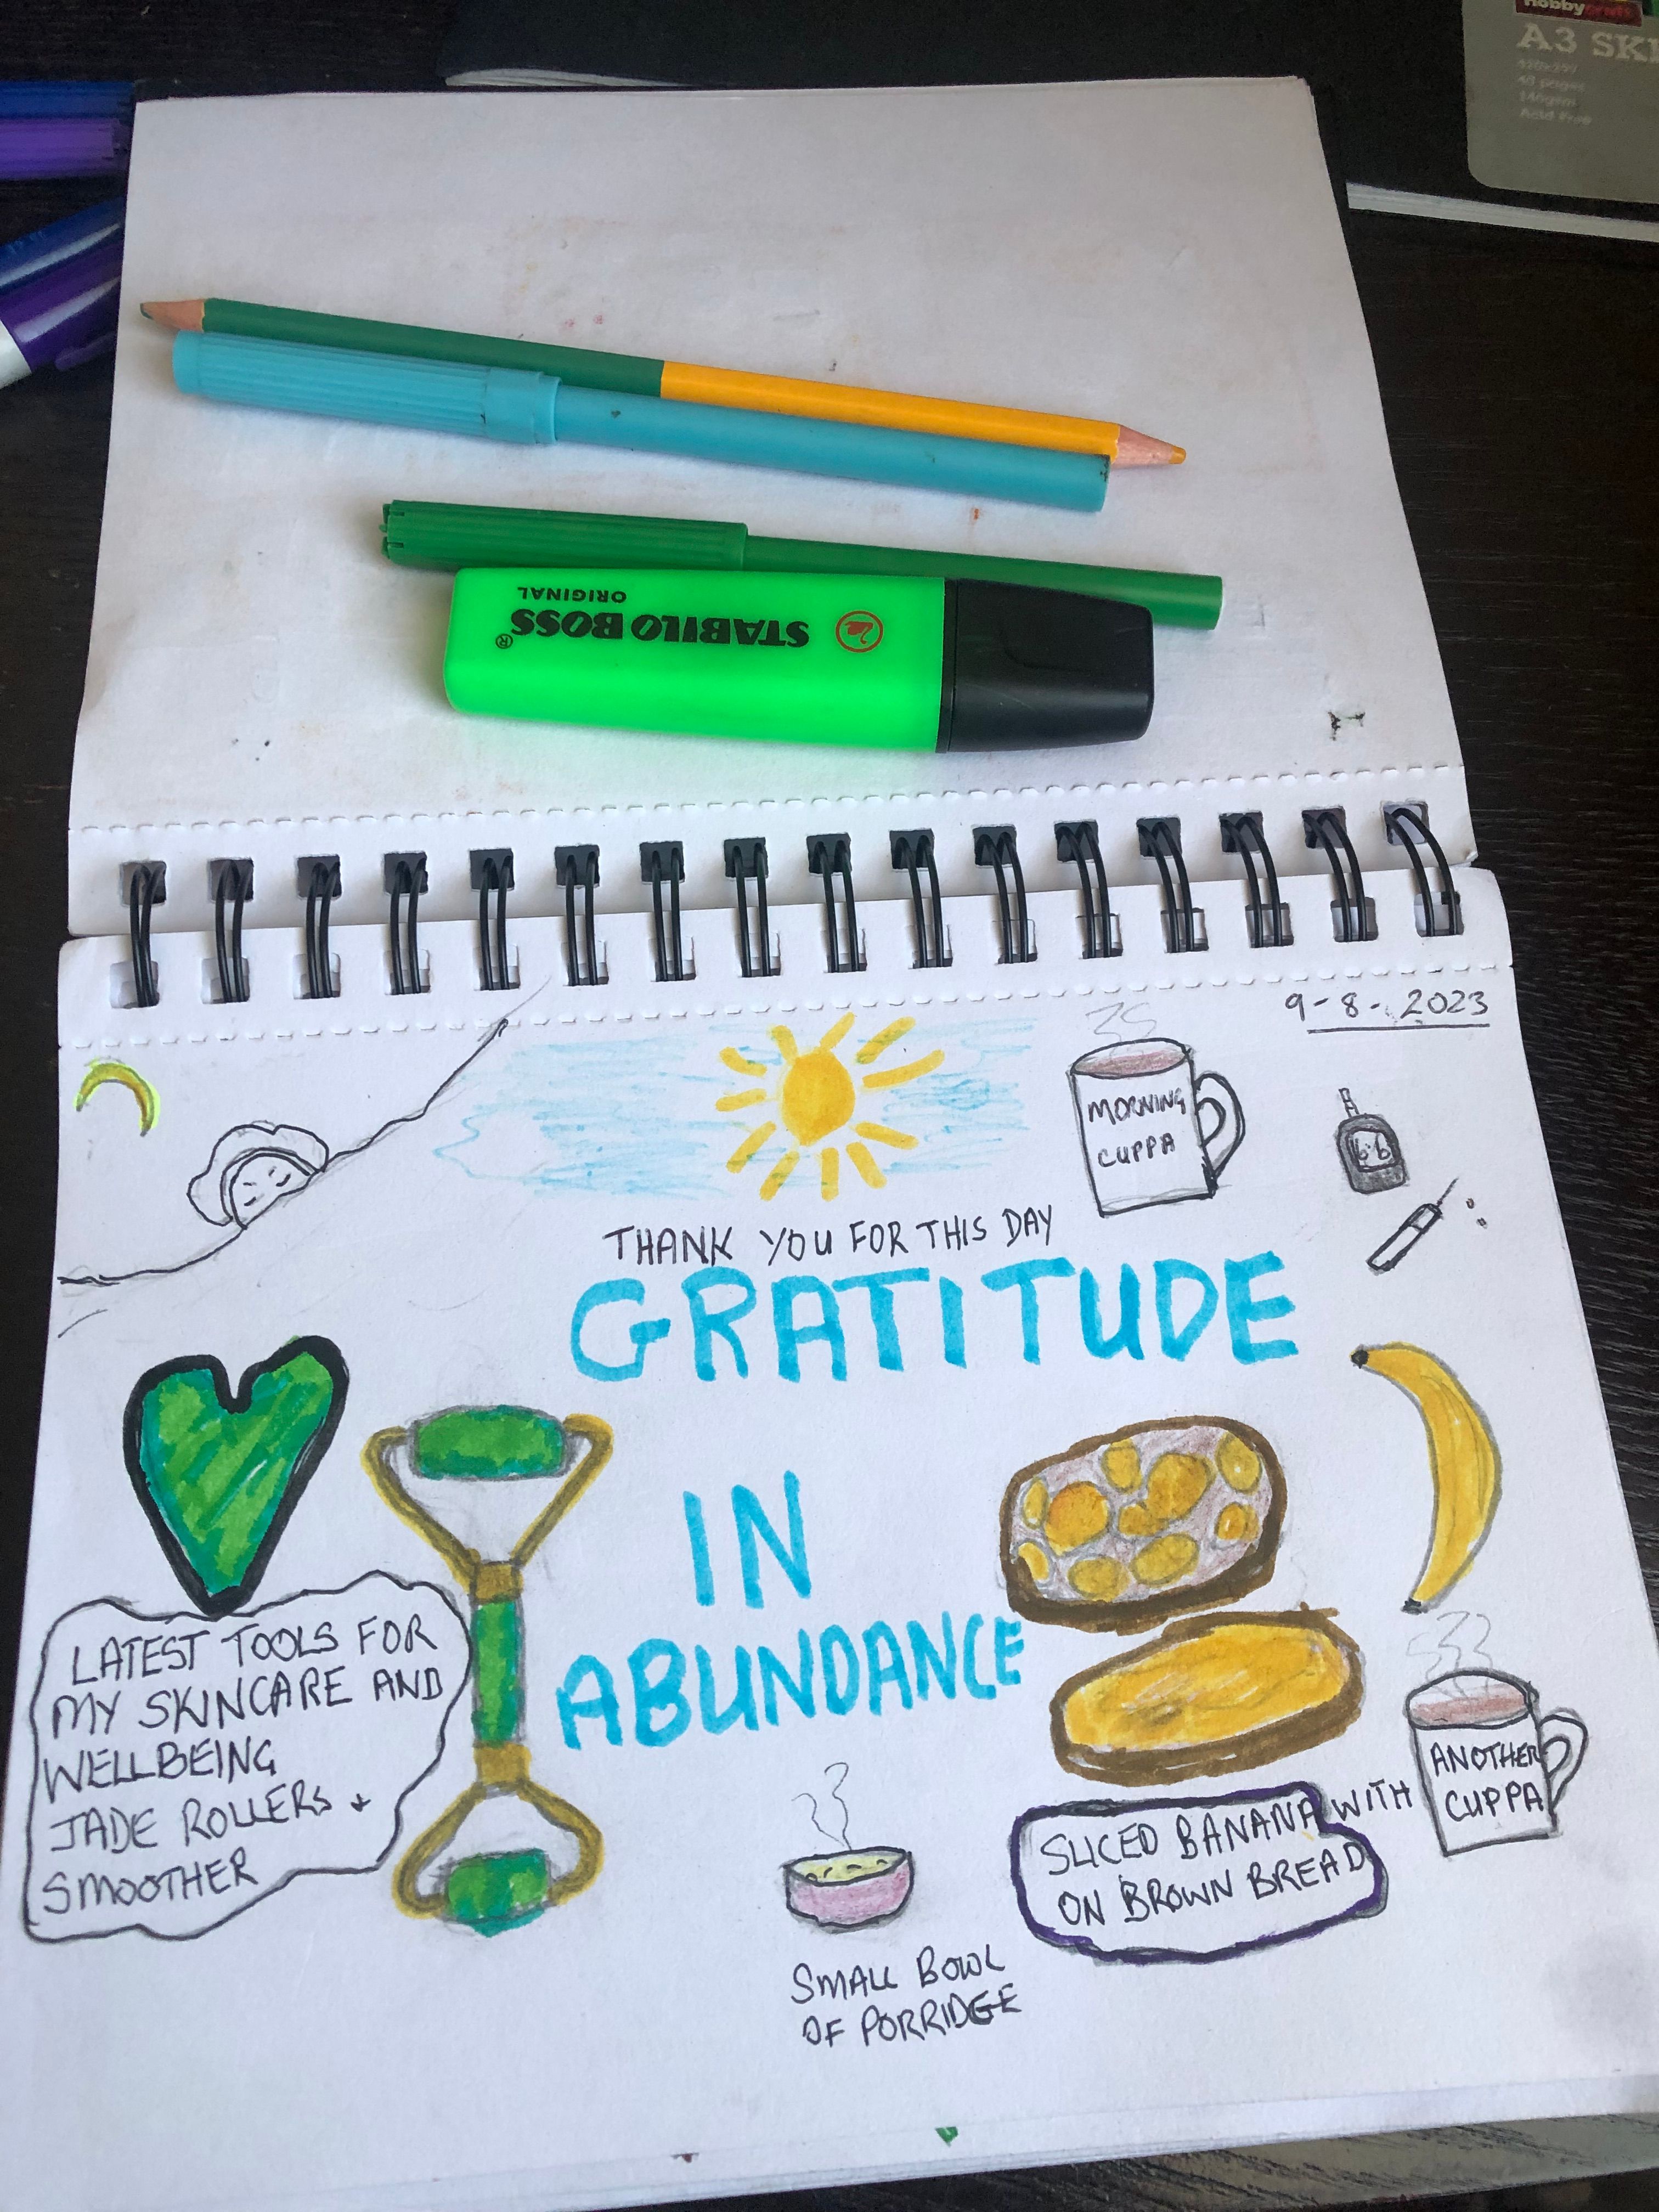 Hobbycrafts
A3 SK
420x297
40 pages
140gsm
Acid Free
STABILO BOSS®
ORIGINAL
9-8-2023
MORNING
CUPPA
6.6
THANK YOU FOR THIS DAY
GRATITUDE
IN
ABUNDANCE
LATEST TOOLS FOR
MY SKINCARE AND
WELLBEING
JADE ROLLERS +
SMOOTHER
ANOTHER
CUPPA
SLICED BANANA WITH
ON BROWN BREAD
SMALL BOWL
OF PORRIDGE